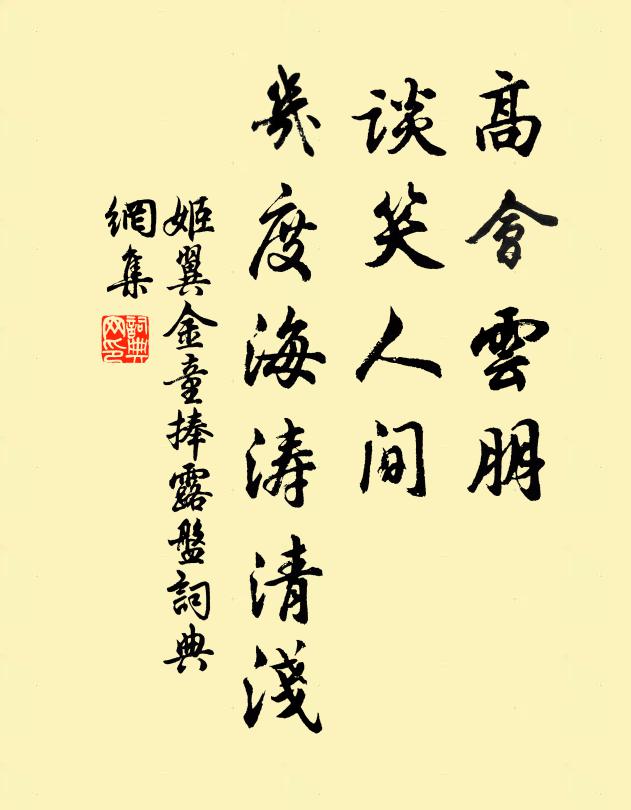 高會雲朋
談笑人間
幾度海濤清淺
姬翼金童捧露盤詞典
網集
詞典
网印